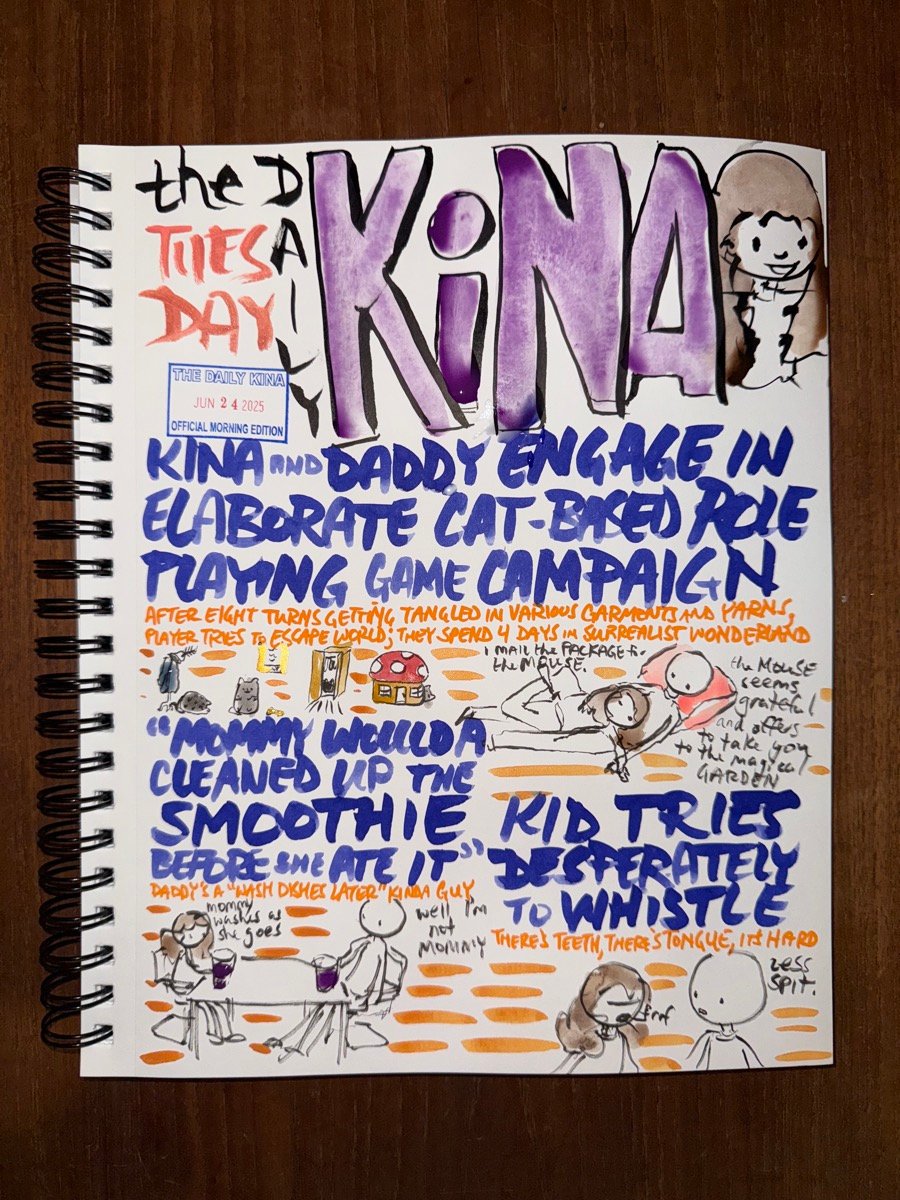 the DAILY KiNA
TUESDAY
THE DAILY KINA
JUN 24 2025
OFFICIAL MORNING EDITION
KINA AND DADDY ENGAGE IN
ELABORATE CAT-BASED ROLE
PLAYING GAME CAMPAIGN
AFTER EIGHT TURNS GETTING TANGLED IN VARIOUS GARMENTS AND YARNS,
PLAYER TRIES TO ESCAPE WORLD; THEY SPEND 4 DAYS IN SURREALIST WONDERLAND
I MAIL the PACKAGE to
the MOUSE.
the MOUSE
seems
grateful
and offers
to take you
to the magical
GARDEN
"MOMMY WOULDA
CLEANED UP THE
SMOOTHIE
BEFORE SHE ATE IT"
DADDY'S A "WASH DISHES LATER" KINDA GUY
mommy
washes as
she goes
well I'm
not
MOMMY
KID TRIES
DESPERATELY
TO WHISTLE
THERE'S TEETH, THERE'S TONGUE, IT'S HARD
Less
SPIT.